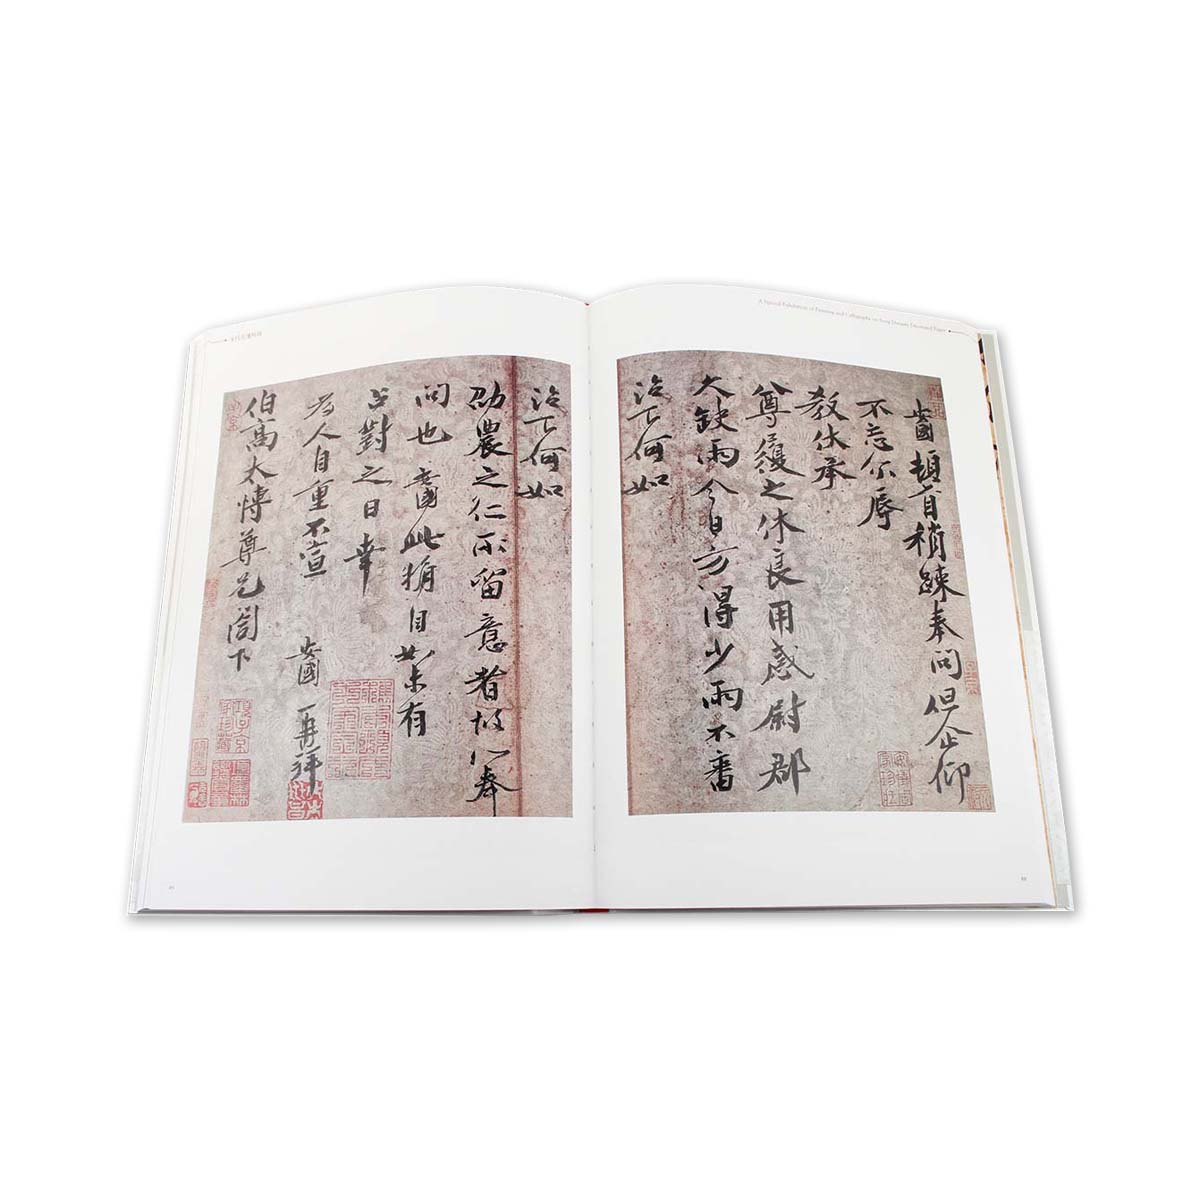 A Special Exhibition of Painting and Calligraphy on Song Dynasty Decorated Paper
頓首稍疎奉問但企仰
不忘尔辱
教伏承
尊履之休良用感尉郡
大缺雨今日方得少雨不審
治下何如
宋代花箋特展
治下何如
勸農之仁所留意者故以奉
問也 此粗自如未有
占對之日幸
為人自重不宣 再拜
伯髙太博尊兄閤下